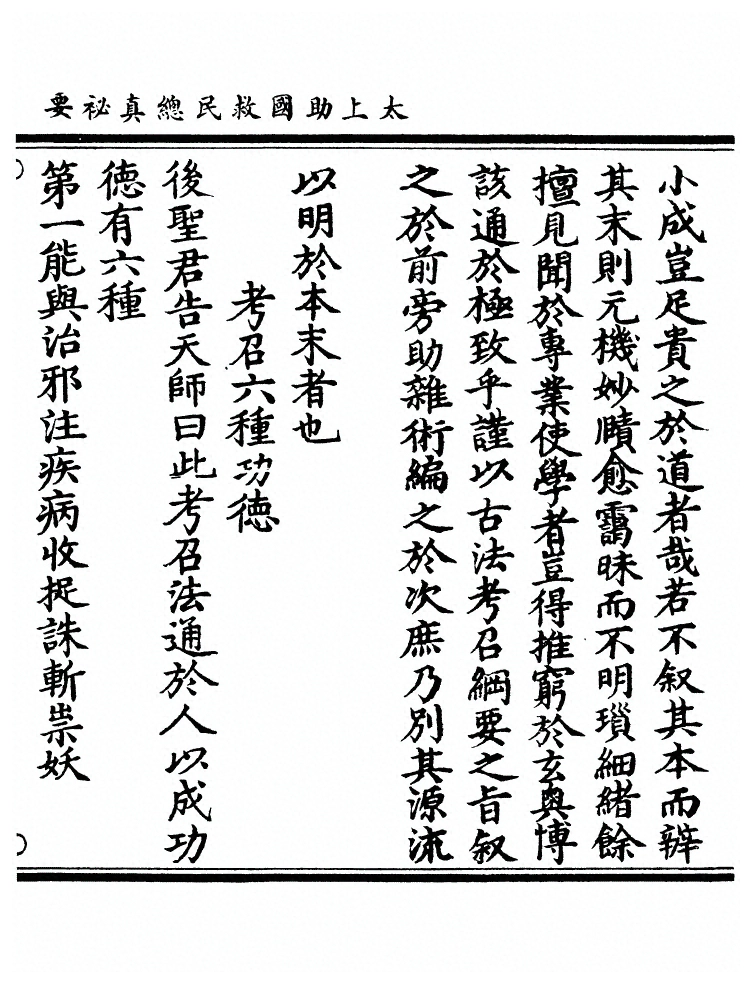 太上助國救民總真祕要
小成豈足貴之於道者哉若不叙其本而辨
其末則元機妙賾愈靄昧而不明瑣細緒餘
擅見聞於專業使學者豈得推窮於玄奥博
該通於極致乎謹以古法考召綱要之旨叙
之於前旁助雜術編之於次庶乃別其源流
以明於本末者也
考召六種功德
後聖君告天師曰此考召法通於人以成功
德有六種
第一能與治邪注疾病收捉誅斬祟妖